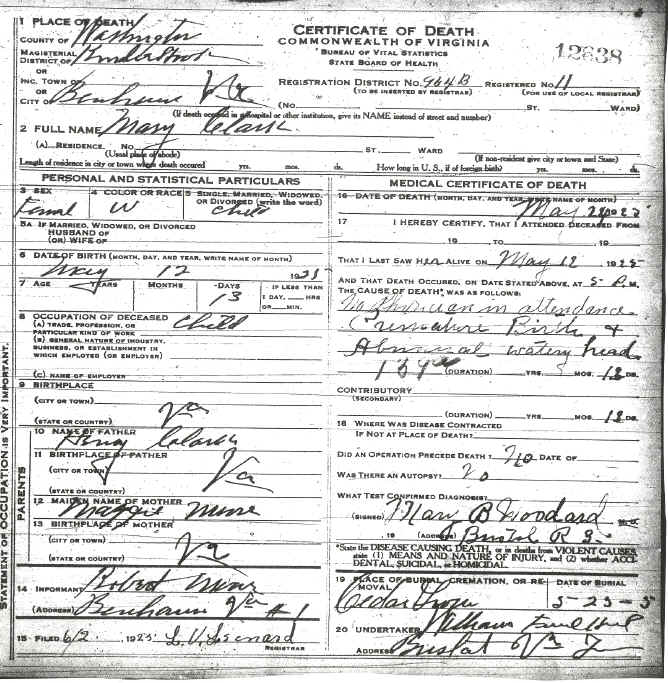 1 PLACE OF DEATH
COUNTY OF Washington
MAGISTERIAL
DISTRICT OF
OR
INC. TOWN OF
OR
CITY OF Benhams Va
CERTIFICATE OF DEATH
COMMONWEALTH OF VIRGINIA
BUREAU OF VITAL STATISTICS
STATE BOARD OF HEALTH
12638
REGISTRATION DISTRICT NO. 964B REGISTERED NO. 11
(TO BE INSERTED BY REGISTRAR) (FOR USE OF LOCAL REGISTRAR)
(No. ST. WARD)
(If death occured in a hospital or other institution, give its NAME instead of street and number)
2 FULL NAME Mary Clark
(A). RESIDENCE. No. ST. WARD
(Usual place of abode) (If non-resident give city or town and State)
Length of residence in city or town where death occured yrs. mos. ds. How long in U. S., if of foreign birth? yrs. mos. ds.
PERSONAL AND STATISTICAL PARTICULARS
3 SEX 4 COLOR OR RACE 5 SINGLE, MARRIED, WIDOWED,
OR DIVORCED (write the word)
Femal W Child
5A IF MARRIED, WIDOWED, OR DIVORCED
HUSBAND OF
(OR) WIFE OF
6 DATE OF BIRTH (MONTH, DAY, AND YEAR, WRITE NAME OF MONTH)
May 12 1925
7 AGE YEARS MONTHS DAYS IF LESS THAN
13 1 DAY, HRS
OR MIN.
8 OCCUPATION OF DECEASED Child
(A) TRADE, PROFESSION, OR
PARTICULAR KIND OF WORK
(B) GENERAL NATURE OF INDUSTRY,
BUSINESS, OR ESTABLISHMENT IN
WHICH EMPLOYED (OR EMPLOYER)
(C) NAME OF EMPLOYER
9 BIRTHPLACE
(CITY OR TOWN)
(STATE OR COUNTRY) Va
PARENTS
10 NAME OF FATHER
Henry Clark
11 BIRTHPLACE OF FATHER
(CITY OR TOWN) Va
(STATE OR COUNTRY)
12 MAIDEN NAME OF MOTHER
Maggie
13 BIRTHPLACE OF MOTHER
(CITY OR TOWN)
(STATE OR COUNTRY) Va
14 INFORMANT Robert
(ADDRESS) Benhams Va # 1
15 FILED 6/2 1925 L. V. Leonard
REGISTRAR
MEDICAL CERTIFICATE OF DEATH
16 DATE OF DEATH (MONTH, DAY, AND YEAR, WRITE NAME OF MONTH)
May
17 I HEREBY CERTIFY, THAT I ATTENDED DECEASED FROM
19 TO 19
THAT I LAST SAW HER ALIVE ON May 12 1925
AND THAT DEATH OCCURED, ON DATE STATED ABOVE, AT 5 A.M.
THE CAUSE OF DEATH* WAS AS FOLLOWS:
No Physician in attendance
Premature Birth &
Abnormal watery head
(DURATION) YRS. MOS. 12 DS.
CONTRIBUTORY
(SECONDARY)
(DURATION) YRS. MOS. 12 DS.
18 WHERE WAS DISEASE CONTRACTED
IF NOT AT PLACE OF DEATH?
DID AN OPERATION PRECEDE DEATH? No DATE OF
WAS THERE AN AUTOPSY? No
WHAT TEST CONFIRMED DIAGNOSIS?
(SIGNED) Mary B Woodard M.D.
, 19 (ADDRESS) Bristol R 3
*State the DISEASE CAUSING DEATH, or in deaths from VIOLENT CAUSES,
state (1) MEANS AND NATURE OF INJURY, and (2) whether ACCI-
DENTAL, SUICIDAL, or HOMICIDAL.
19 PLACE OF BURIAL, CREMATION, OR RE- DATE OF BURIAL
MOVAL
Cedar Grove 5-25-5
20 UNDERTAKER William
ADDRESS Bristol Va
STATEMENT OF OCCUPATION IS VERY IMPORTANT.